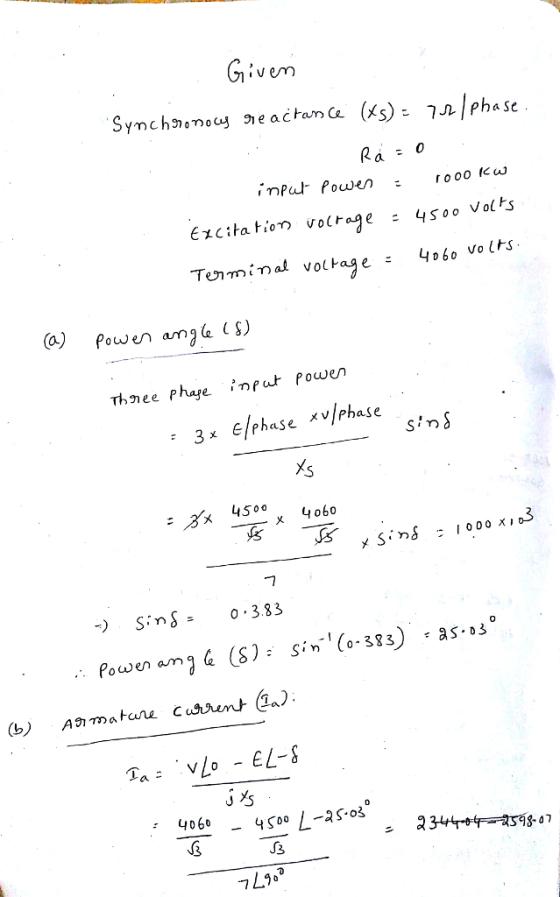 Given
Synchronous reactance (Xs) = 7Ω/phase.
Ra = 0
input power = 1000 KW
Excitation voltage = 4500 Volts
Terminal voltage = 4060 volts.
(a) power angle (δ)
Three phase input power
= 3 x E/phase x V/phase / Xs sinδ
= 3 x 4500/√3 x 4060/√3 / 7 x sinδ = 1000 x 10³
=) sinδ = 0.383
∴ power angle (δ) = sin⁻¹ (0.383) = 25.03°
(b) Armature current (Ia):
Ia = V∠0 - E∠-δ / jXs
= 4060/√3 - 4500/√3 ∠-25.03° / 7∠90° = 2344.04 - 2598.07